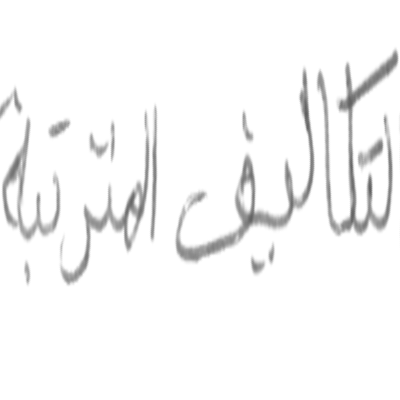 التكاليف المترتبة